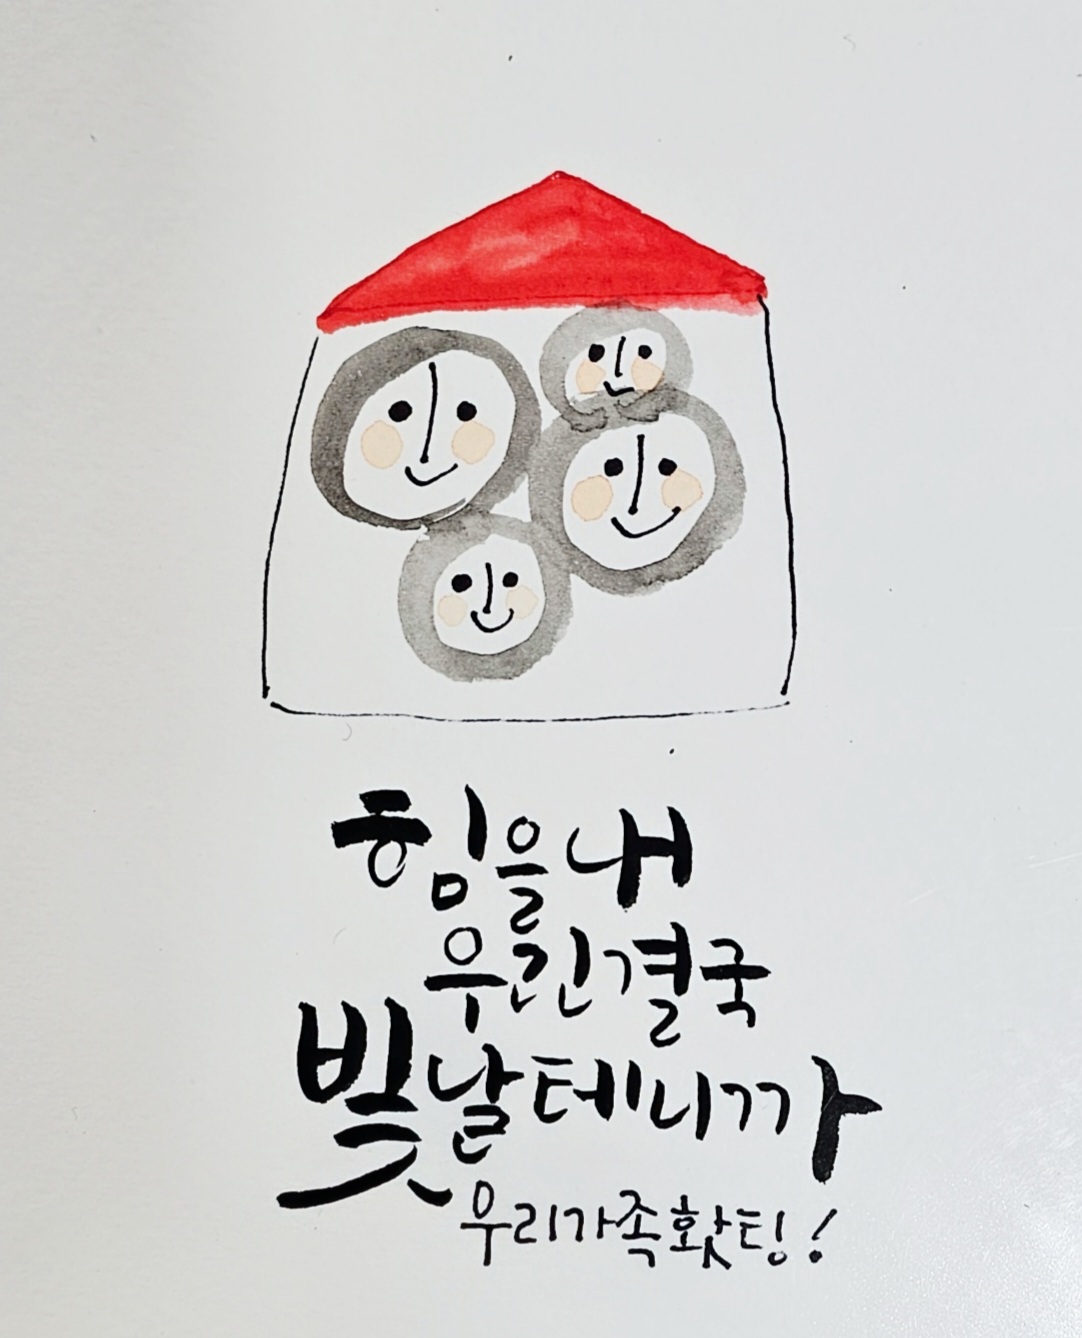 힘을내
우린결국
빛날테니까
우리가족홧팅!